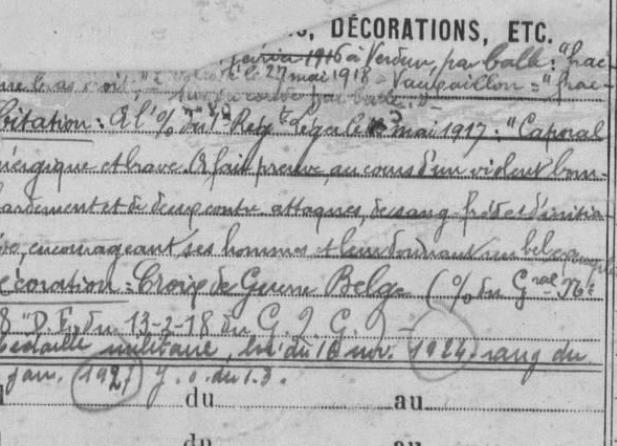 S, DÉCORATIONS, ETC.
février 1916 à Verdun, par balle : "frac-
le 27 mai 1918 - Vauxaillon = "frac-
par balle.
Citation : A l'% du Régt le mai 1917 : "Caporal
énergique et brave. A fait preuve, au cours d'un violent bom-
bardement et de deux contre-attaques, de sang-froid et d'initia-
encourageant ses hommes et leur donnant un bel exemple
écoration : Croix de Guerre Belge (% du Gral Nº
8 "D.E., du 13-2-18 du G.Q.G.) -
Médaille militaire, du 16 nov. 1924. rang du
jan. 1927 J.O. du 1.3.
du au
du au